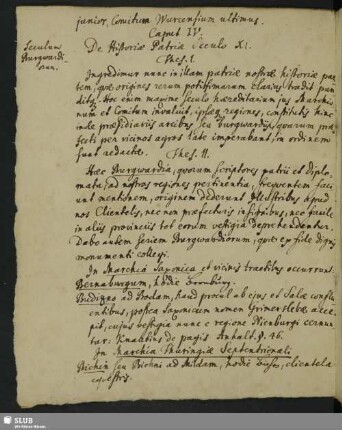 junior, Comitum Wurcensium ultimus.
Caput IV.
De Historia Patria Seculo XI.
Seculum
Burgwardi
Thes. I.
Ingredimur nunc in illam patriae nostrae historiae par-
tem, quae origines rerum potissimarum clarius tradit pan-
ditq. Hoc enim maxime seculo haereditarium jus Marchio-
num et Comitum invaluit, ipsaeq regiones, constitutis hinc
inde praesidiariis arcibus seu Burgwardiis, quarum prae-
fecti per vicinos agros late imperabant, in ordinem
sunt redactae.
Thes. II.
Haec Burgwardia, quorum scriptores patrii et diplo-
mata, ad nostros regiones pertinentia, frequentem faci-
unt mentionem, originem dederunt illustribus apud
nos Clientelis, nec non praefecturis insignibus, nec facile
in aliis provinciis tot eorum vestigia deprehenduntur.
Dabo autem seriem Burgwardiorum, quae ex fide dignis
monumentis collegi.
In Marchia Saxonica et vicinis tractibus occurrunt
Bernaburgum, hodie Bernburg.
ad Bodam, haud procul ab ejus et Salae conflu-
entibus, postea Saxonicum nomen Grimerslebe acce-
pit, cujus vestigia nunc e regione Nienburgi cernun-
tur. Knauthius de pagis Anhalt. p. 46.
In Marchia Thuringiae Septentrionali
Bichin seu Bichni ad Mildam, hodie
clientela
equestris.
SLUB